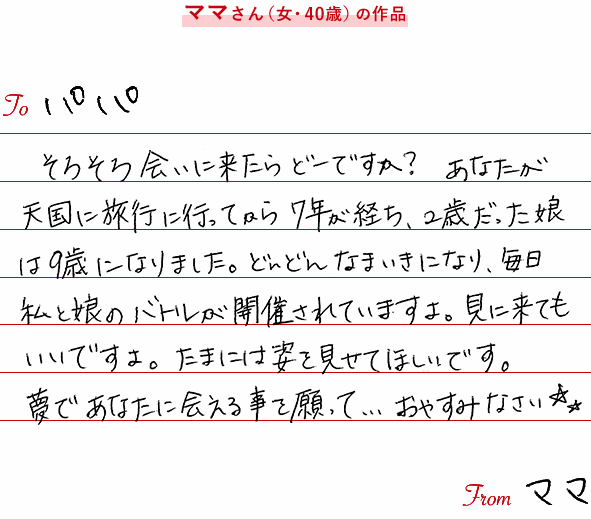 ママさん（女・40歳）の作品
To パパ
そろそろ会いに来たらどーですか？ あなたが
天国に旅行に行ってから7年が経ち、2歳だった娘
は9歳になりました。どんどんなまいきになり、毎日
私と娘のバトルが開催されていますよ。見に来ても
いいですよ。たまには姿を見せてほしいです。
夢であなたに会える事を願って…おやすみなさい☆☆
From ママ